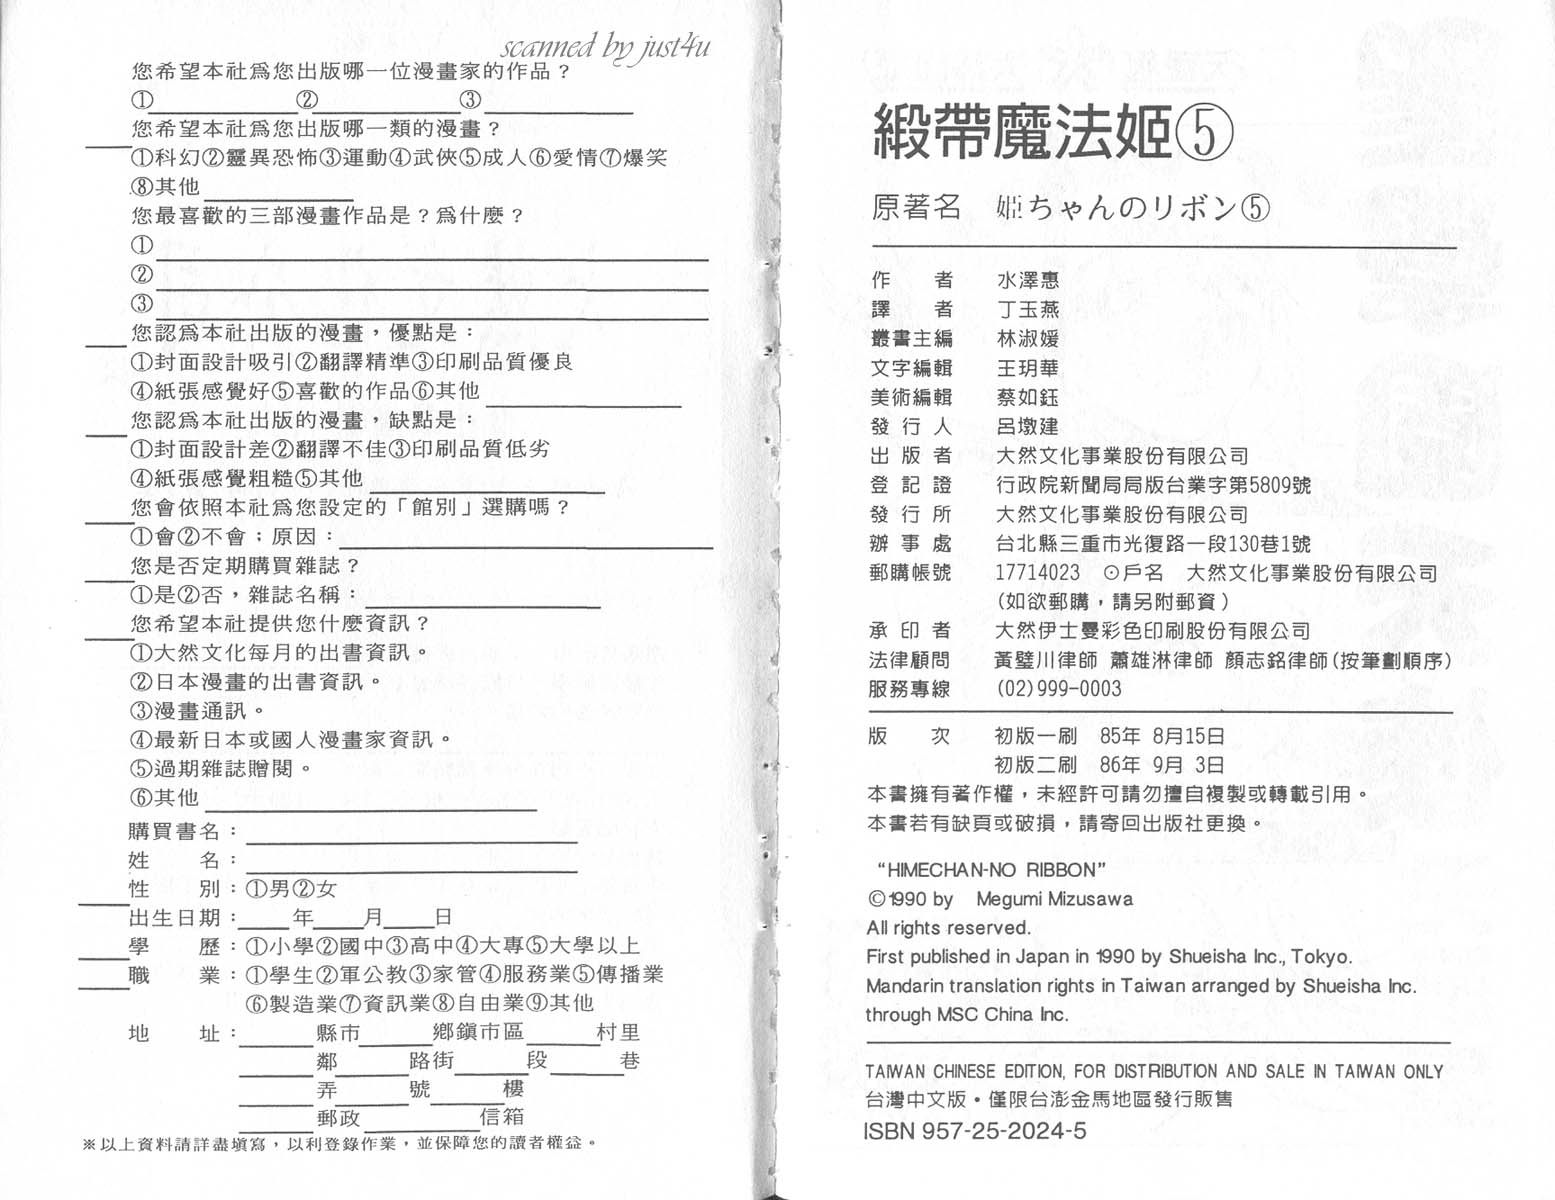 scanned by just4u
您希望本社為您出版哪一位漫畫家的作品？
① ② ③
您希望本社為您出版哪一類的漫畫？
①科幻②靈異恐怖③運動④武俠⑤成人⑥愛情⑦爆笑
⑧其他
您最喜歡的三部漫畫作品是？為什麼？
①
②
③
您認為本社出版的漫畫，優點是：
①封面設計吸引②翻譯精準③印刷品質優良
④紙張感覺好⑤喜歡的作品⑥其他
您認為本社出版的漫畫，缺點是：
①封面設計差②翻譯不佳③印刷品質低劣
④紙張感覺粗糙⑤其他
您會依照本社為您設定的「館別」選購嗎？
①會②不會；原因：
您是否定期購買雜誌？
①是②否，雜誌名稱：
您希望本社提供您什麼資訊？
①大然文化每月的出書資訊。
②日本漫畫的出書資訊。
③漫畫通訊。
④最新日本或國人漫畫家資訊。
⑤過期雜誌贈閱。
⑥其他
購買書名：
姓 名：
性 別：①男②女
出生日期： 年 月 日
學 歷：①小學②國中③高中④大專⑤大學以上
職 業：①學生②軍公教③家管④服務業⑤傳播業
⑥製造業⑦資訊業⑧自由業⑨其他
地 址： 縣市 鄉鎮市區 村里
鄰 路街 段 巷
弄 號 樓
郵政 信箱
※以上資料請詳盡填寫，以利登錄作業，並保障您的讀者權益。
緞帶魔法姬⑤
原著名 姫ちゃんのリボン⑤
作 者 水澤惠
譯 者 丁玉燕
叢書主編 林淑媛
文字編輯 王玥華
美術編輯 蔡如鈺
發行人 呂墩建
出版者 大然文化事業股份有限公司
登記證 行政院新聞局局版台業字第5809號
發行所 大然文化事業股份有限公司
辦事處 台北縣三重市光復路一段130巷1號
郵購帳號 17714023 ⊙戶名 大然文化事業股份有限公司
(如欲郵購，請另附郵資)
承印者 大然伊士曼彩色印刷股份有限公司
法律顧問 黃璧川律師 蕭雄淋律師 顏志銘律師(按筆劃順序)
服務專線 (02)999-0003
版 次 初版一刷 85年 8月15日
初版二刷 86年 9月 3日
本書擁有著作權，未經許可請勿擅自複製或轉載引用。
本書若有缺頁或破損，請寄回出版社更換。
“HIMECHAN-NO RIBBON”
©1990 by Megumi Mizusawa
All rights reserved.
First published in Japan in 1990 by Shueisha Inc., Tokyo.
Mandarin translation rights in Taiwan arranged by Shueisha Inc.
through MSC China Inc.
TAIWAN CHINESE EDITION, FOR DISTRIBUTION AND SALE IN TAIWAN ONLY
台灣中文版・僅限台澎金馬地區發行販售
ISBN 957-25-2024-5